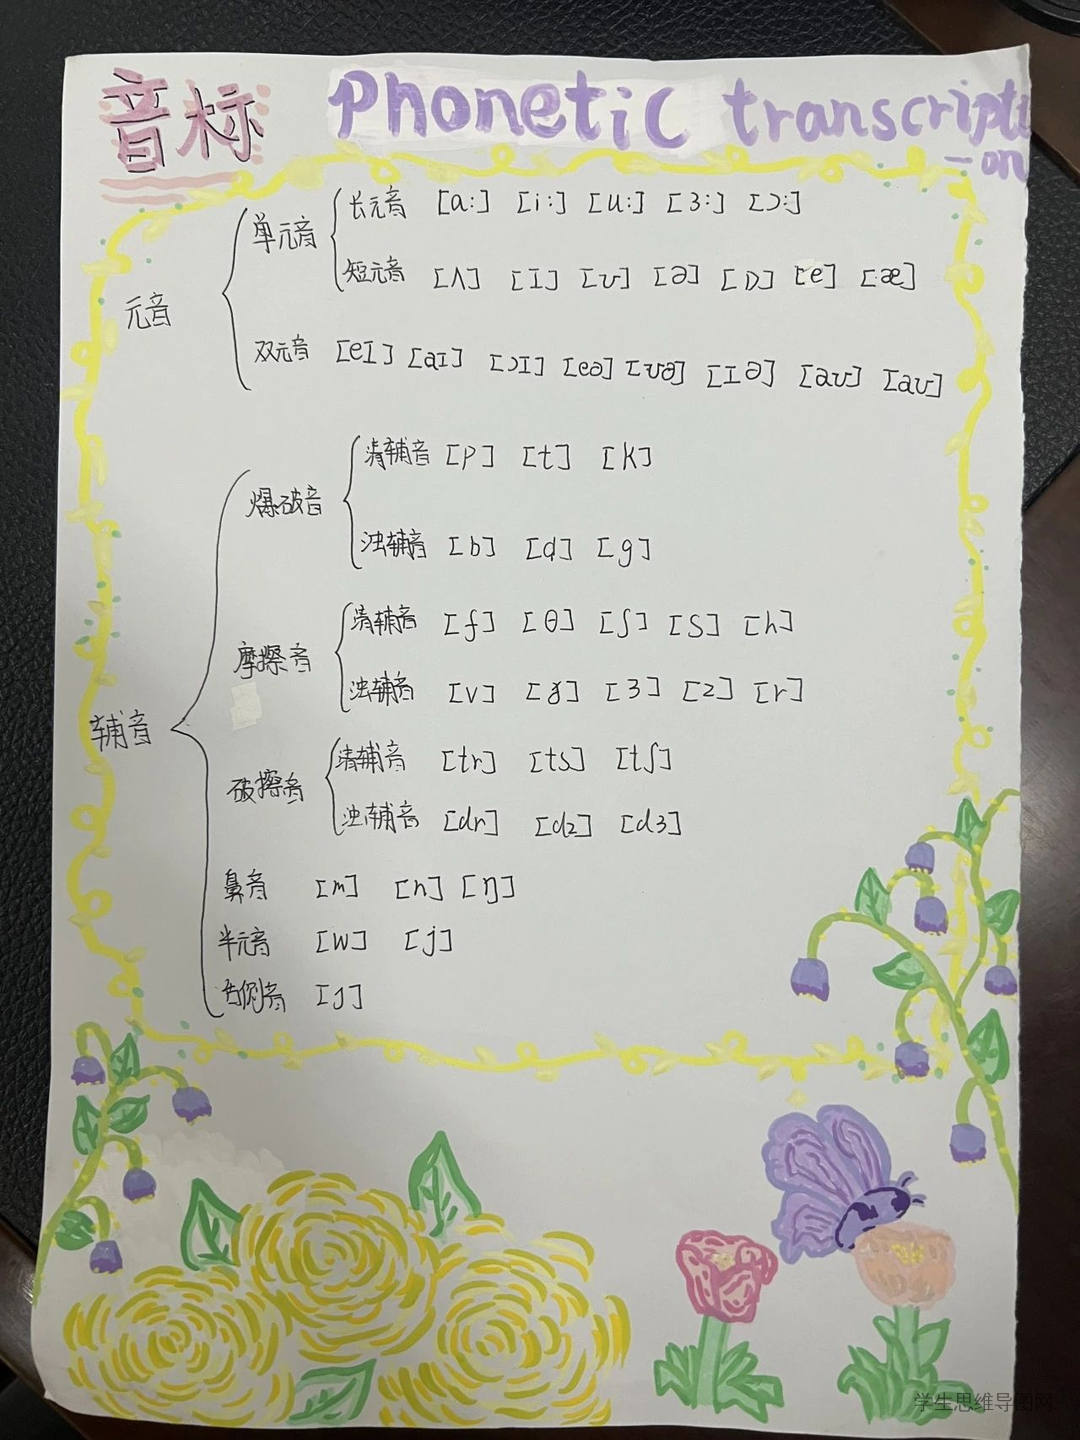 音标 Phonetic transcripti
-on
元音
单元音
长元音 [a:] [i:] [u:] [3:] [ɔ:]
短元音 [ʌ] [ɪ] [ʊ] [ə] [ɒ] [e] [æ]
双元音 [eɪ] [aɪ] [ɔɪ] [eə] [ʊə] [ɪə] [aʊ] [aʊ]
辅音
爆破音
清辅音 [p] [t] [k]
浊辅音 [b] [d] [g]
摩擦音
清辅音 [f] [θ] [ʃ] [s] [h]
浊辅音 [v] [ʒ] [z] [r]
破擦音
清辅音 [tr] [ts] [tʃ]
浊辅音 [dr] [dz] [dʒ]
鼻音 [m] [n] [ŋ]
半元音 [w] [j]
学生思维导图网